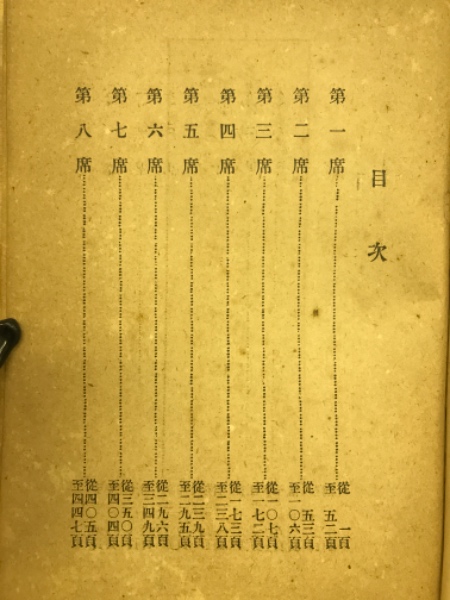 目次
第一席 從一頁至五二頁
第二席 從五三頁至一〇六頁
第三席 從一〇七頁至一七二頁
第四席 從一七三頁至二三八頁
第五席 從二三九頁至二九五頁
第六席 從二九六頁至三四九頁
第七席 從三五〇頁至四〇四頁
第八席 從四〇五頁至四四七頁